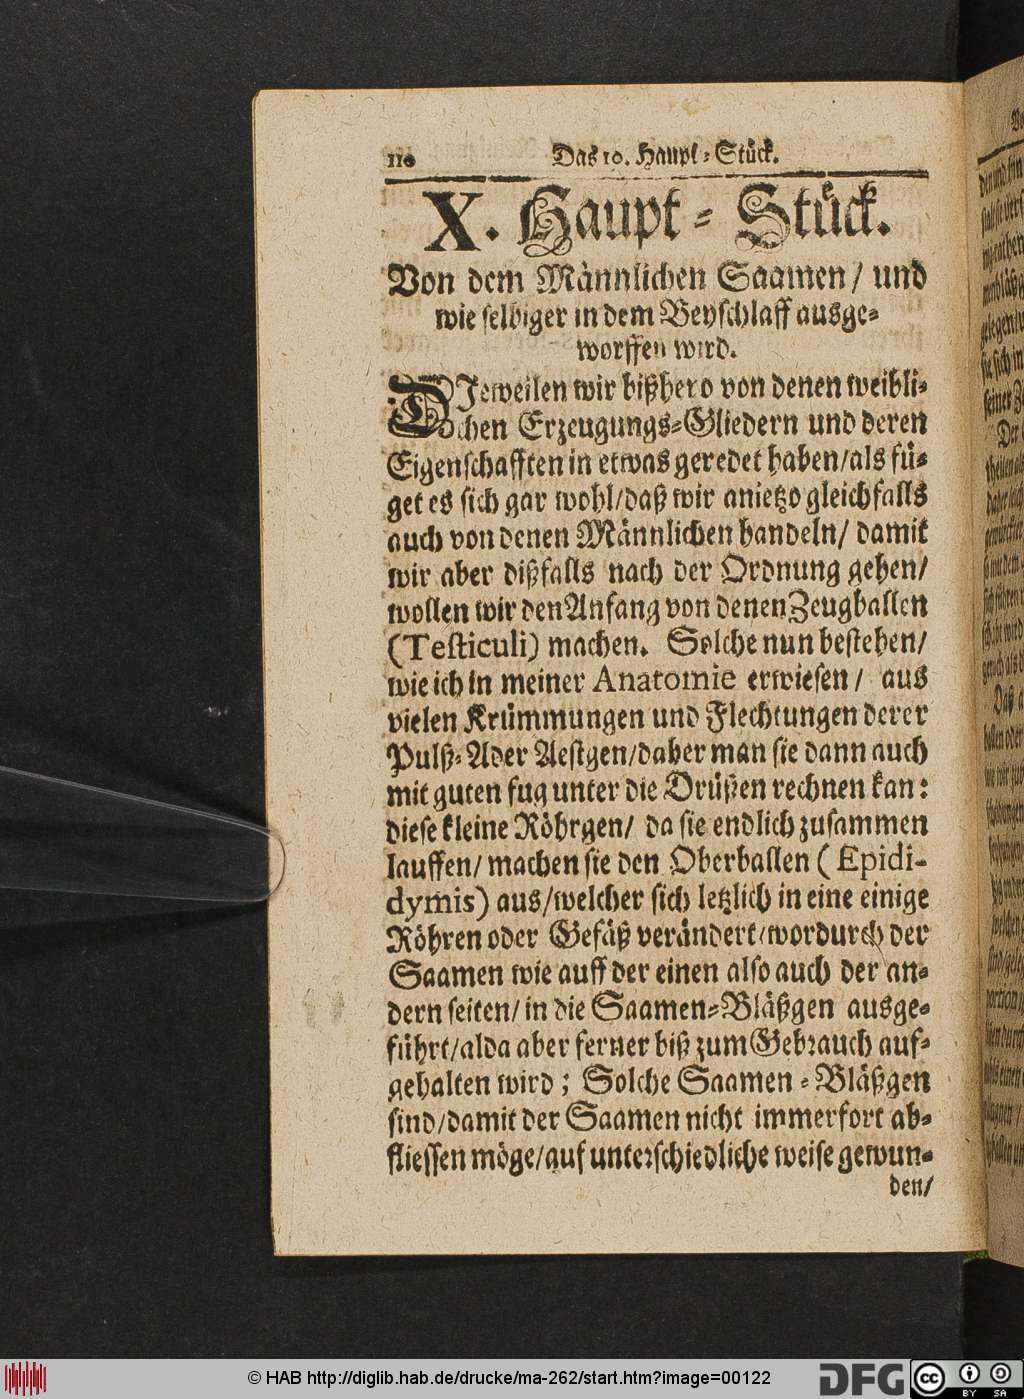 110 Das 10. Haupt-Stück.
X. Haupt-Stück.
Von dem Männlichen Saamen/ und
wie selbiger in dem Beyschlaff ausge-
worffen wird.
DIeweilen wir bißhero von denen weibli-
chen Erzeugungs-Gliedern und deren
Eigenschafften in etwas geredet haben/als fü-
get es sich gar wohl/daß wir anietzo gleichfalls
auch von denen Männlichen handeln/ damit
wir aber dißfalls nach der Ordnung gehen/
wollen wir den Anfang von denen Zeugballen
(Testiculi) machen. Solche nun bestehen/
wie ich in meiner Anatomie erwiesen/ aus
vielen Krümmungen und Flechtungen derer
Pulß-Ader Aestgen/daher man sie dann auch
mit guten fug unter die Drüßen rechnen kan:
diese kleine Röhrgen/ da sie endlich zusammen
lauffen/ machen sie den Oberballen (Epidi-
dymis) aus/welcher sich letzlich in eine einige
Röhren oder Gefäß verändert/wordurch der
Saamen wie auff der einen also auch der an-
dern seiten/ in die Saamen-Bläßgen ausge-
führt/alda aber ferner biß zum Gebrauch auf-
gehalten wird; Solche Saamen-Bläßgen
sind/damit der Saamen nicht immerfort ab-
fliessen möge/auf unterschiedliche weise gewun-
den/
© HAB http://diglib.hab.de/drucke/ma-262/start.htm?image=00122
DFG
cc BY SA